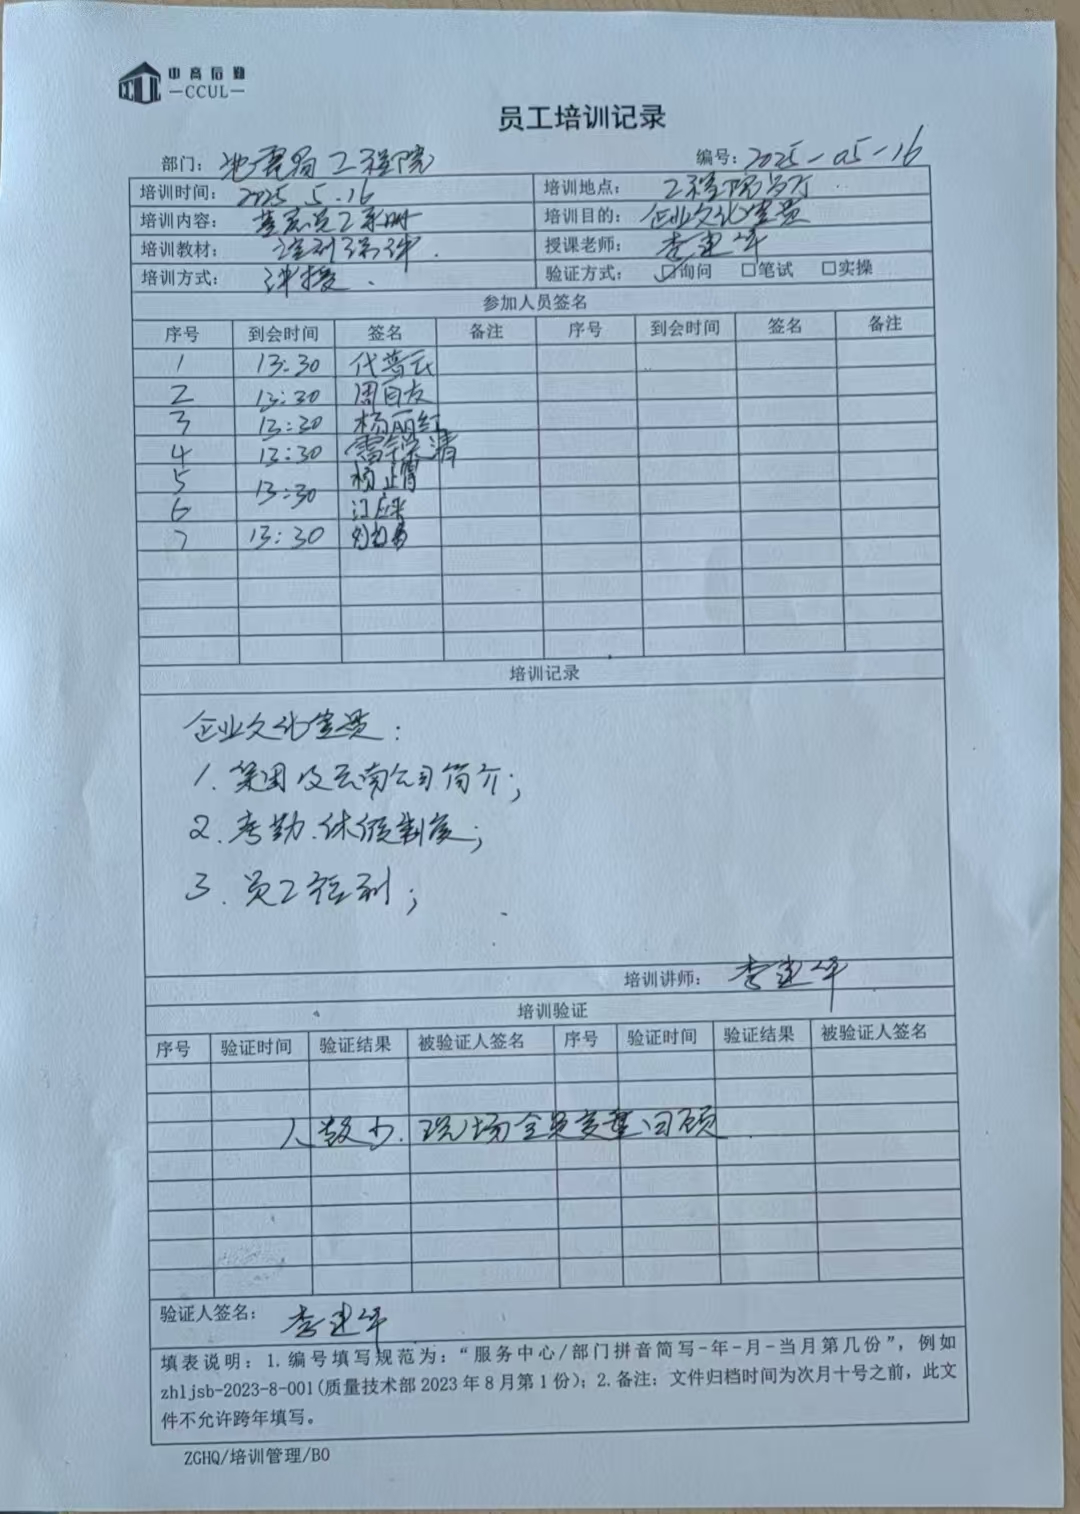 中高后勤
CCUL
员工培训记录
部门：地震局工程院 编号：2025-05-16
培训时间：2025.5.16 培训地点：工程院
培训内容：员工手册 培训目的：企业文化宣贯
培训教材： 授课老师：李建华
培训方式：讲授. 验证方式：☑询问 □笔试 □实操
参加人员签名
序号 到会时间 签名 备注 序号 到会时间 签名 备注
1 13:30 代普云
2 13:30 周自友
3 13:30 杨丽红
4 13:30
5 13:30 杨
6
7 13:30
培训记录
企业文化宣贯：
1. 集团及云南公司简介；
2. 考勤.休假制度；
3. 员工福利；
培训讲师：李建华
培训验证
序号 验证时间 验证结果 被验证人签名 序号 验证时间 验证结果 被验证人签名
人数少.现场全员复盘回顾
验证人签名：李建华
填表说明：1.编号填写规范为：“服务中心/部门拼音简写-年-月-当月第几份”，例如
zhljsb-2023-8-001(质量技术部2023年8月第1份)；2.备注：文件归档时间为次月十号之前，此文
件不允许跨年填写。
ZGHQ/培训管理/B0